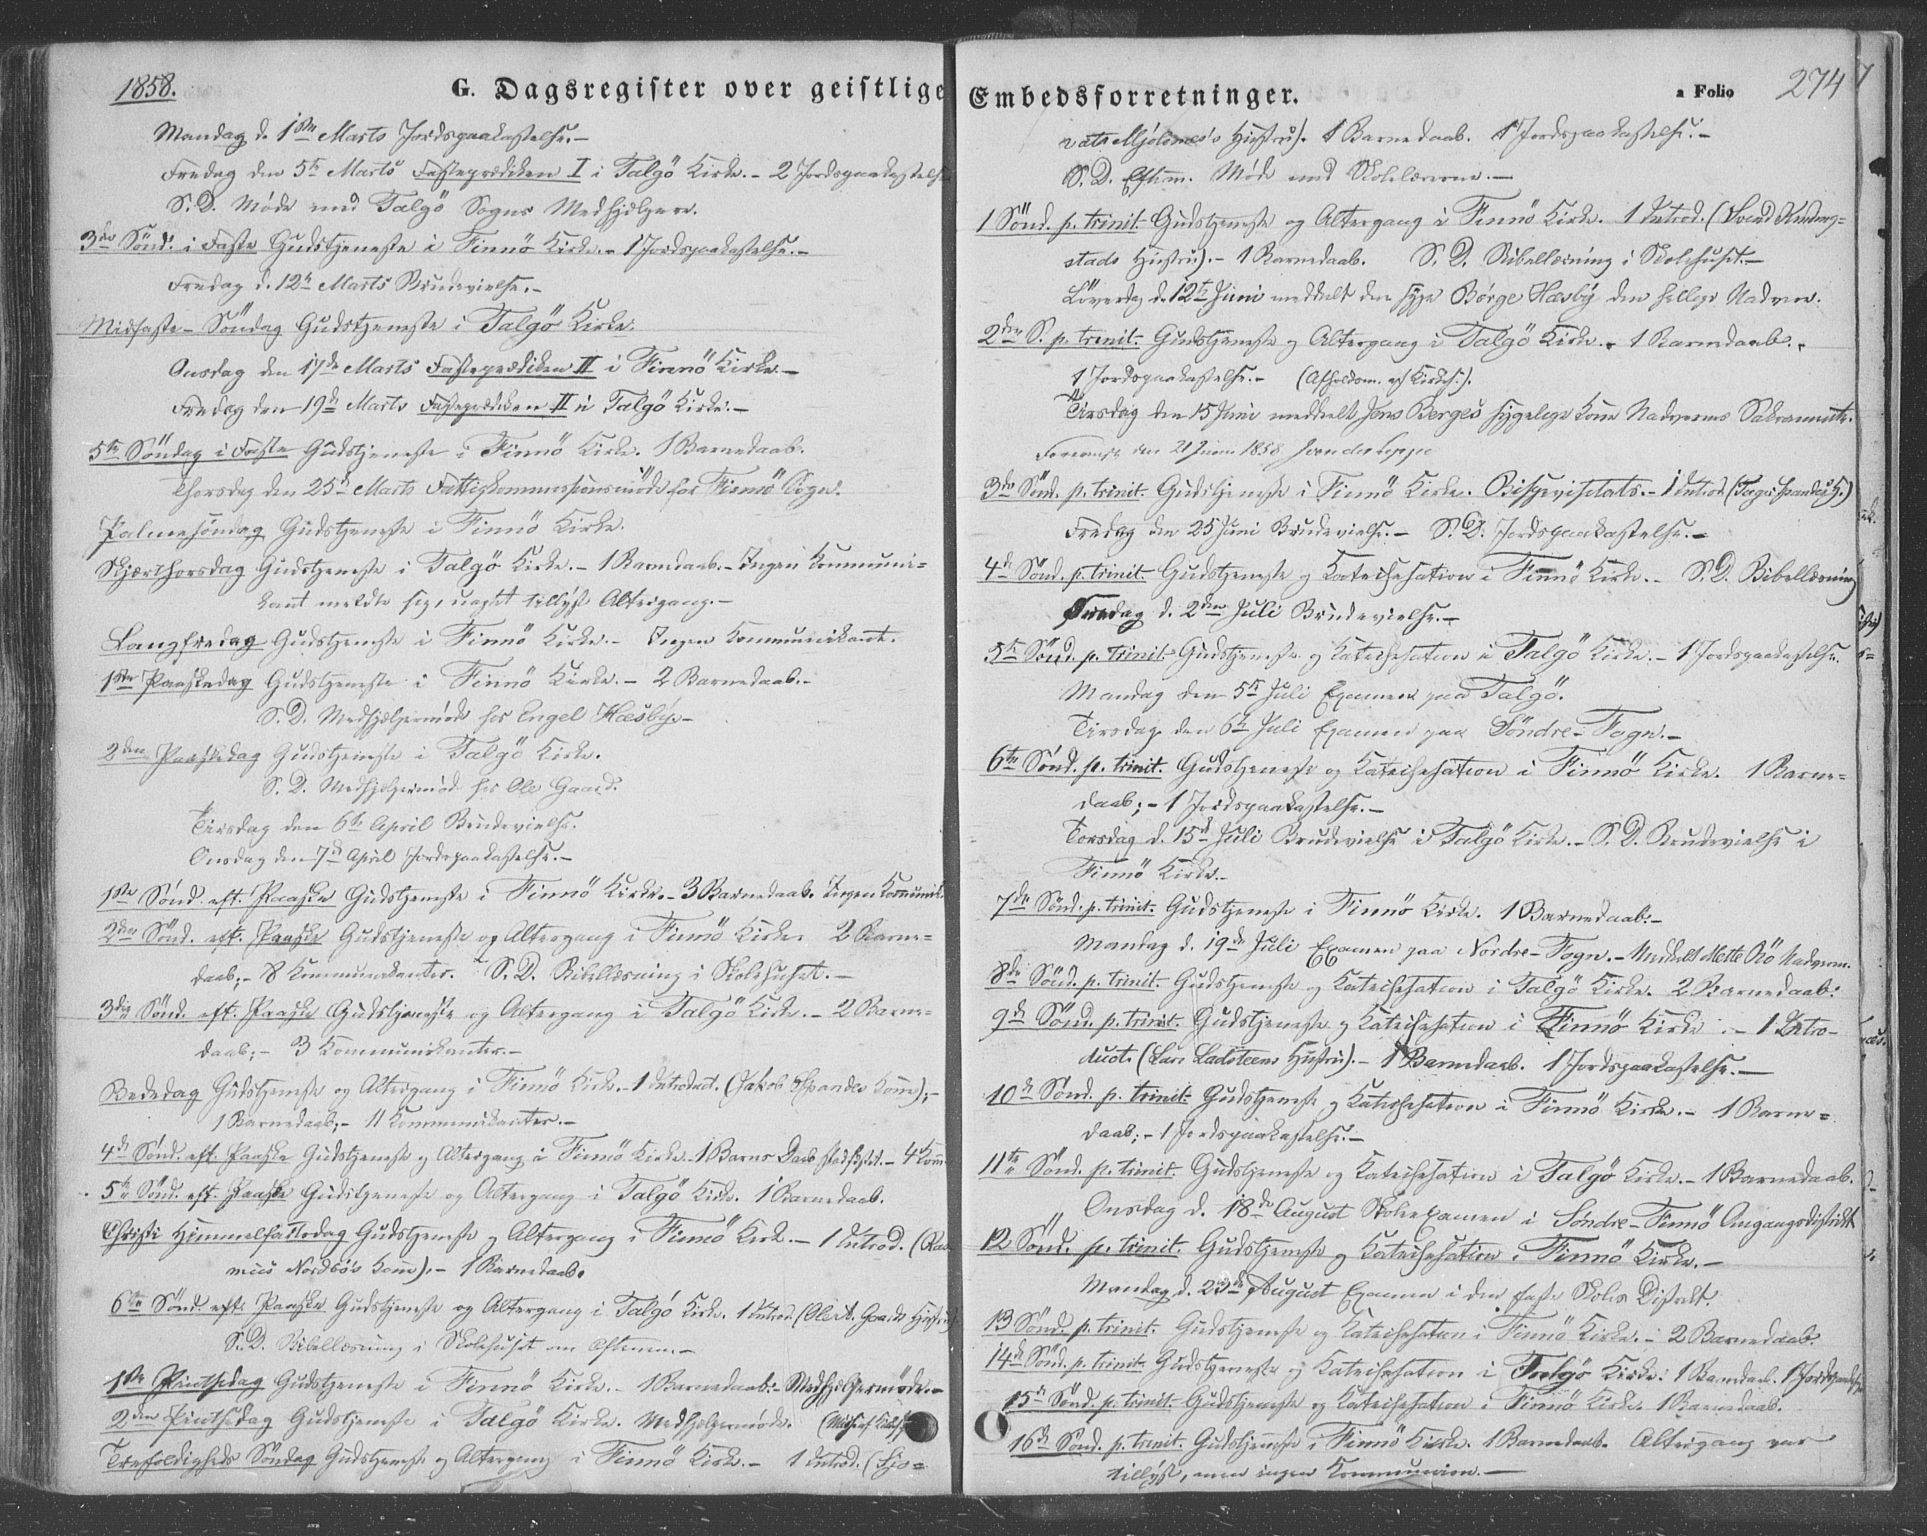 1858.
G. Dagsregister over geistlige
Mandag d. 1ste Marts Jordspaakastelse. -
Fredag den 5te Marts Fasteprædiken I i Talgö Kirke. - 2 Jordspaakastelse
S. D. Möde med Talgö Sogns Medhjelpere.
3die Sönd. i Faste Gudstjeneste i Finnö Kirke. - 1 Jordspaakastelse. -
Fredag d. 12te Marts Brudevielse. -
Midfaste-Söndag Gudstjeneste i Talgö Kirke.
Onsdag den 17de Marts Fasteprædiken II i Finnö Kirke. -
Fredag den 19de Marts Fasteprædiken II i Talgö Kirke. -
5te Söndag i Faste Gudstjeneste i Finnö Kirke. 1 Barnedaab.
Thorsdag den 25de Marts Fattigkommissionsmöde for Finnö Sogn.
Palmesöndag Gudstjeneste i Finnö Kirke.
Skjærthorsdag Gudstjeneste i Talgö Kirke. - 1 Barnedaab. - Ingen Kommuni-
kant meldte sig, uagtet tillyst Altergang. -
Langfredag Gudstjeneste i Finnö Kirke. - Ingen Kommunikant.
1ste Paaskedag Gudstjeneste i Finnö Kirke. - 2 Barnedaab. -
S. D. Medhjelpermöde hos Engel Hæsbÿ. -
2den Paaskedag Gudstjeneste i Talgö Kirke.
S. D. Medhjelpermöde hos Ole Gaard.
Tirsdag den 6te April Brudevielse.
Onsdag den 7de April Jordspaakastelse. -
1ste Sönd. eft. Paaske Gudstjeneste i Finnö Kirke. - 3 Barnedaab. Ingen Kommunik.
2den Sönd. eft. Paaske Gudstjeneste og Altergang i Finnö Kirke. 2 Barne-
daab; - 8 Kommunikanter. S. D. Bibellæsning i Skolehuset. -
3die Sönd. eft. Paaske Gudstjeneste og Altergang i Talgö Kirke. - 2 Barne-
daab; - 3 Kommunikanter. -
Bededag Gudstjeneste og Altergang i Finnö Kirke. - 1 Introduct. (Jakob Spandes Kone); -
1 Barnedaab; - 11 Kommunikanter. -
4de Sönd. eft. Paaske Gudstjeneste og Altergang i Finnö Kirke. - 1 Barns Daab stadfæstet. - 4 Kom
5te Sönd. eft. Paaske Gudstjeneste og Altergang i Talgö Kirke. 1 Barnedaab.
Christi Himmelfartsdag Gudstjeneste og Altergang i Finnö Kirke. - 1 Introd. (Ras
mus Nordbö's Kone). - 1 Barnedaab.
6te Sönd. eft. Paaske Gudstjeneste og Altergang i Talgö Kirke. 1 Introd. (Ole Gaards Hustru)
S. D. Bibellæsning i Skolehuset om Aftenen. -
1ste Pintsedag Gudstjeneste i Finnö Kirke. - 1 Barnedaab. - Medhjelpermöde. -
2den Pintsedag Gudstjeneste i Talgö Kirke. Medhjelpermöde.
Trefoldigheds Söndag Gudstjeneste og Altergang i Finnö Kirke. - 1 Introd. (Sjo-
Embedsforretninger.
a Folio 274
Hustru). 1 Barnedaab. 1 Jordspaakastelse. -
S. D. Efterm. Möde med Skolelærerne. -
1 Sönd. p. trinit. Gudstjeneste og Altergang i Finnö Kirke. 1 Introd. (Svend
stads Hustru). - 1 Barnedaab. S. D. Bibellæsning i Skolehuset. -
Löverdag d. 12te Juni meddelt den syge Börge Hæsbÿ den hellige Nadvere.
2den S. p. trinit. Gudstjeneste og Altergang i Talgö Kirke. - 1 Barnedaab. -
1 Jordspaakastelse. -
Tirsdag den 15 Juni meddelt Jens Berges sygelige Kone Nadverens Sakramente.
den 21 Juni 1858
3die Sönd. p. trinit. Gudstjeneste i Finnö Kirke. Bispevisitats. - 1 Introd.
Fredag den 25 Juni Brudevielse. - S. D. Jordspaakastelse. -
4de Sönd. p. trinit. Gudstjeneste og Katechesation i Finnö Kirke. - S. D. Bibellæsning
Fredag d. 2den Juli Brudevielse. -
5te Sönd. p. trinit. Gudstjeneste og Katechesation i Talgö Kirke. - 1 Jordspaakastelse.
Mandag den 5te Juli Examen paa Talgö.
Tirsdag den 6te Juli Examen paa Söndre-Fogn. -
6te Sönd. p. trinit. Gudstjeneste og Katechesation i Finnö Kirke. 1 Barne-
daab; - 1 Jordspaakastelse. -
Torsdag d. 15de Juli Brudevielse i Talgö Kirke. - S. D. Brudevielse i
Finnö Kirke. -
7de Sönd. p. trinit. Gudstjeneste i Finnö Kirke. 1 Barnedaab. -
Mandag d. 19de Juli Examen paa Nordre-Fogn. - Meddelt Mette Rö Nadveren.
8de Sönd. p. trinit. Gudstjeneste og Katechesation i Talgö Kirke. 2 Barnedaab.
9de Sönd. p. trinit. Gudstjeneste og Katechesation i Finnö Kirke. - 1 Intro-
duct. (Lars Ladsteens Hustru). - 1 Barnedaab. 1 Jordspaakastelse. -
10de Sönd. p. trinit. Gudstjeneste og Katechesation i Finnö Kirke. - 1 Barne-
daab; - 1 Jordspaakastelse. -
11te Sönd. p. trinit. Gudstjeneste og Katechesation i Talgö Kirke. - 1 Barnedaab.
Onsdag d. 18de August Skoleexamen i Söndre-Finnö Omgangsdistrikt
12 Sönd. p. trinit. Gudstjeneste og Katechesation i Finnö Kirke. -
Mandag d. 23de August Examen i den faste Skoles Distrikt.
13 Sönd. p. trinit. Gudstjeneste og Katechesation i Finnö Kirke. - 2 Barnedaab.
14de Sönd. p. trinit. Gudstjeneste og Katechesation i Talgö Kirke. 1 Barnedaab. 1 Jordspaakastelse
15de Sönd. p. trinit. Gudstjeneste og Katechesation i Finnö Kirke. 1 Barnedaab.
16de Sönd. p. trinit. Gudstjeneste i Finnö Kirke. 1 Barnedaab. Altergang var
tillyst, men ingen Kommunion. -